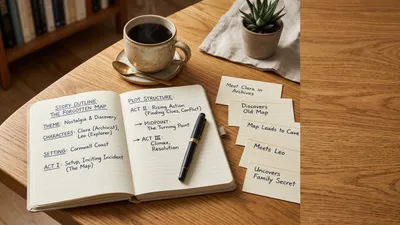 STORY OUTLINE:
THE FORGOTTEN MAP
THEME: Nostalgia & Discovery
CHARACTERS: Clara (Archivist);
Leo (Explorer)
SETTING: Cornwall Coast
ACT I: Setup, Inciting Incident
(The Map)
PLOT STRUCTURE:
ACT II: Rising Action
(Finding Clues, Conflict)
→ MIDPOINT:
The Turning Point
→ ACT III:
Climax,
Resolution
Meet Clara in
Archives
Discovers
Old Map
Map Leads to Cave
Meets Leo
Uncovers
Family Secret